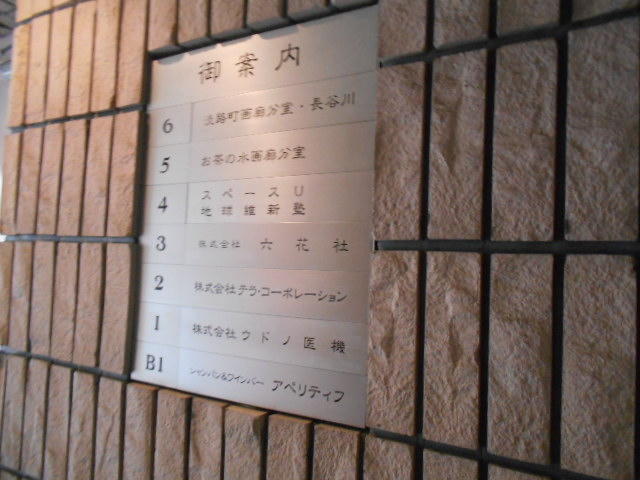 御案内
6 淡路町画廊分室・長谷川
5 お茶の水画廊分室
4 スペースU
地球維新塾
3 株式会社 六花社
2 株式会社テラ・コーポレーション
1 株式会社ウドノ医機
B1 シャンパン&ワインバー アペリティフ